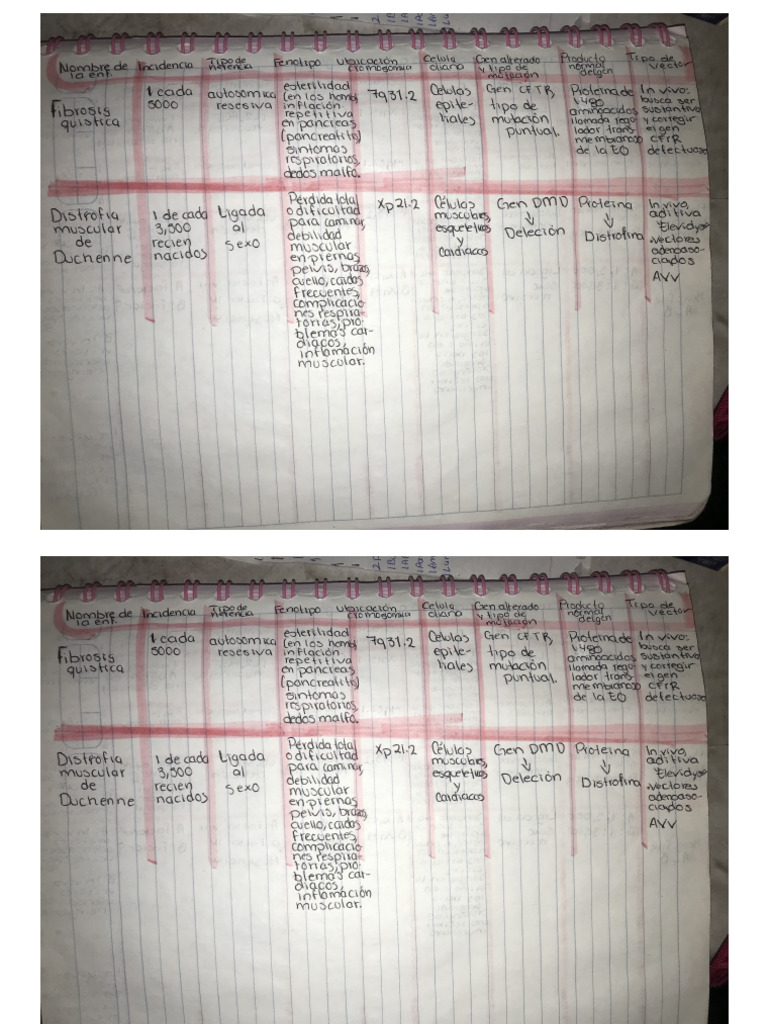 Nombre de la enf. | Incidencia | Tipo de herencia | Fenotipo | Ubicación cromosomia | Celula diana | Gen alterado y tipo de mutación | Producto normal del gen | Tipo de vector
Fibrosis quistica | 1 cada 5000 | autosomica resesiva | esterilidad (en los homb) inflación repetitiva en pancreas, (pancreatits) sintomas respiratorios, dedos malfo. | 7q31.2 | Celulas epite-liales | Gen CFTR, tipo de mutación puntual. | Proteina de 1480 aminoacidos llamada regulador trans membranas de la EO | In vivo: busca ser sustantivo y corregir el gen CFTR defectuoso
Distrofia muscular de Duchenne | 1 de cada 3,500 recien nacidos | Ligada al sexo | Pérdida total o dificultad para caminar, debilidad muscular en piernas pelvis, brazo, cuello, caidas frecuentes, complicacio nes respira-torias, pro-blemas car-diacos, inflamación muscular. | Xp21.2 | Células musculres, esqueletivas y cardiacas | Gen DMD ↓ Deleción | Proteina ↓ Distrofina | In vivo, aditiva Elevidys vectores adenoaso-ciados AVV
Nombre de la enf. | Incidencia | Tipo de herencia | Fenotipo | Ubicación cromosomia | Celula diana | Gen alterado y tipo de mutación | Producto normal del gen | Tipo de vector
Fibrosis quistica | 1 cada 5000 | autosomica resesiva | esterilidad (en los homb) inflación repetitiva en pancreas, (pancreatits) sintomas respiratorios, dedos malfo. | 7q31.2 | Celulas epite-liales | Gen CFTR, tipo de mutación puntual. | Proteina de 1480 aminoacidos llamada regulador trans membranas de la EO | In vivo: busca ser sustantivo y corregir el gen CFTR defectuoso
Distrofia muscular de Duchenne | 1 de cada 3,500 recien nacidos | Ligada al sexo | Pérdida total o dificultad para caminar, debilidad muscular en piernas pelvis, brazo, cuello, caidas frecuentes, complicacio nes respira-torias, pro-blemas car-diacos, inflamación muscular. | Xp21.2 | Células musculres, esqueletivas y cardiacas | Gen DMD ↓ Deleción | Proteina ↓ Distrofina | In vivo, aditiva Elevidys vectores adenoaso-ciados AVV